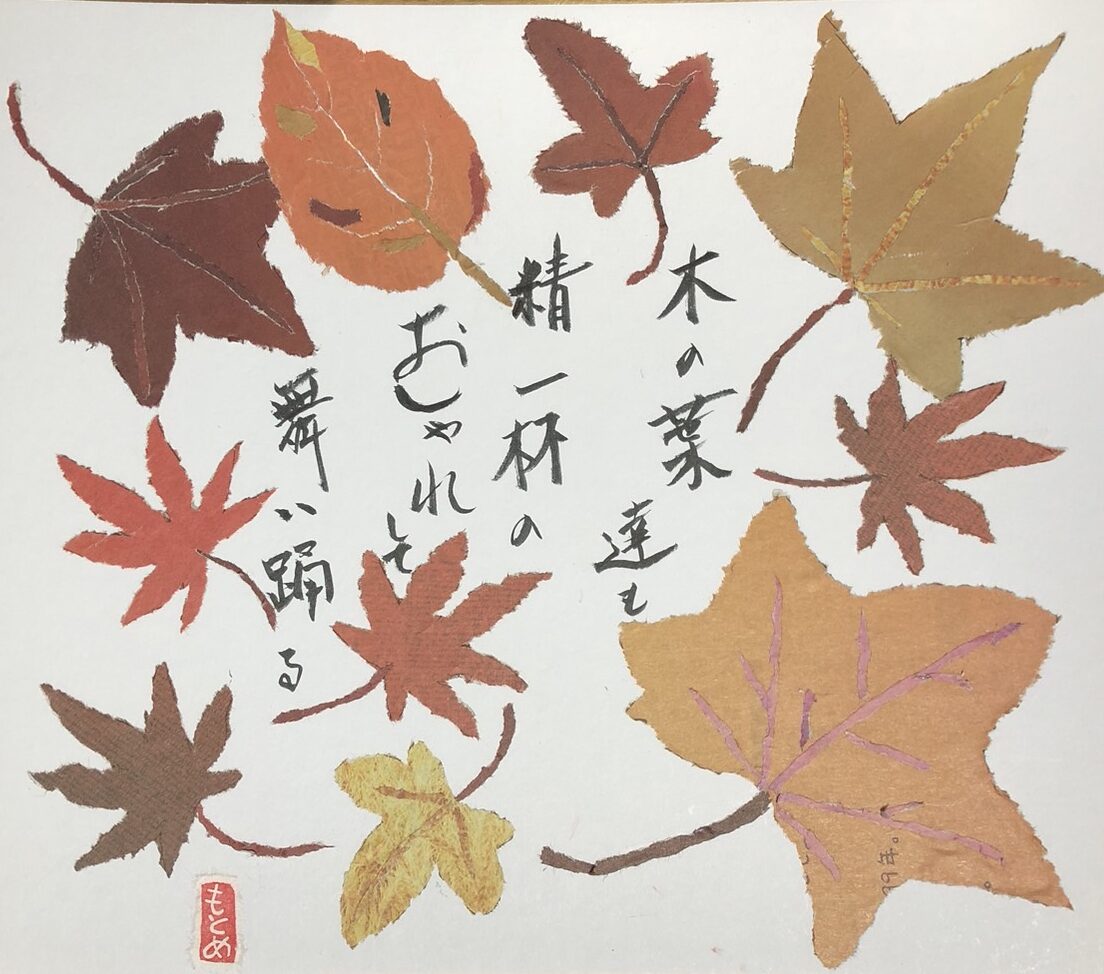 木の葉達も
精一杯の
おしゃれして
舞い踊る
もとめ
99年。